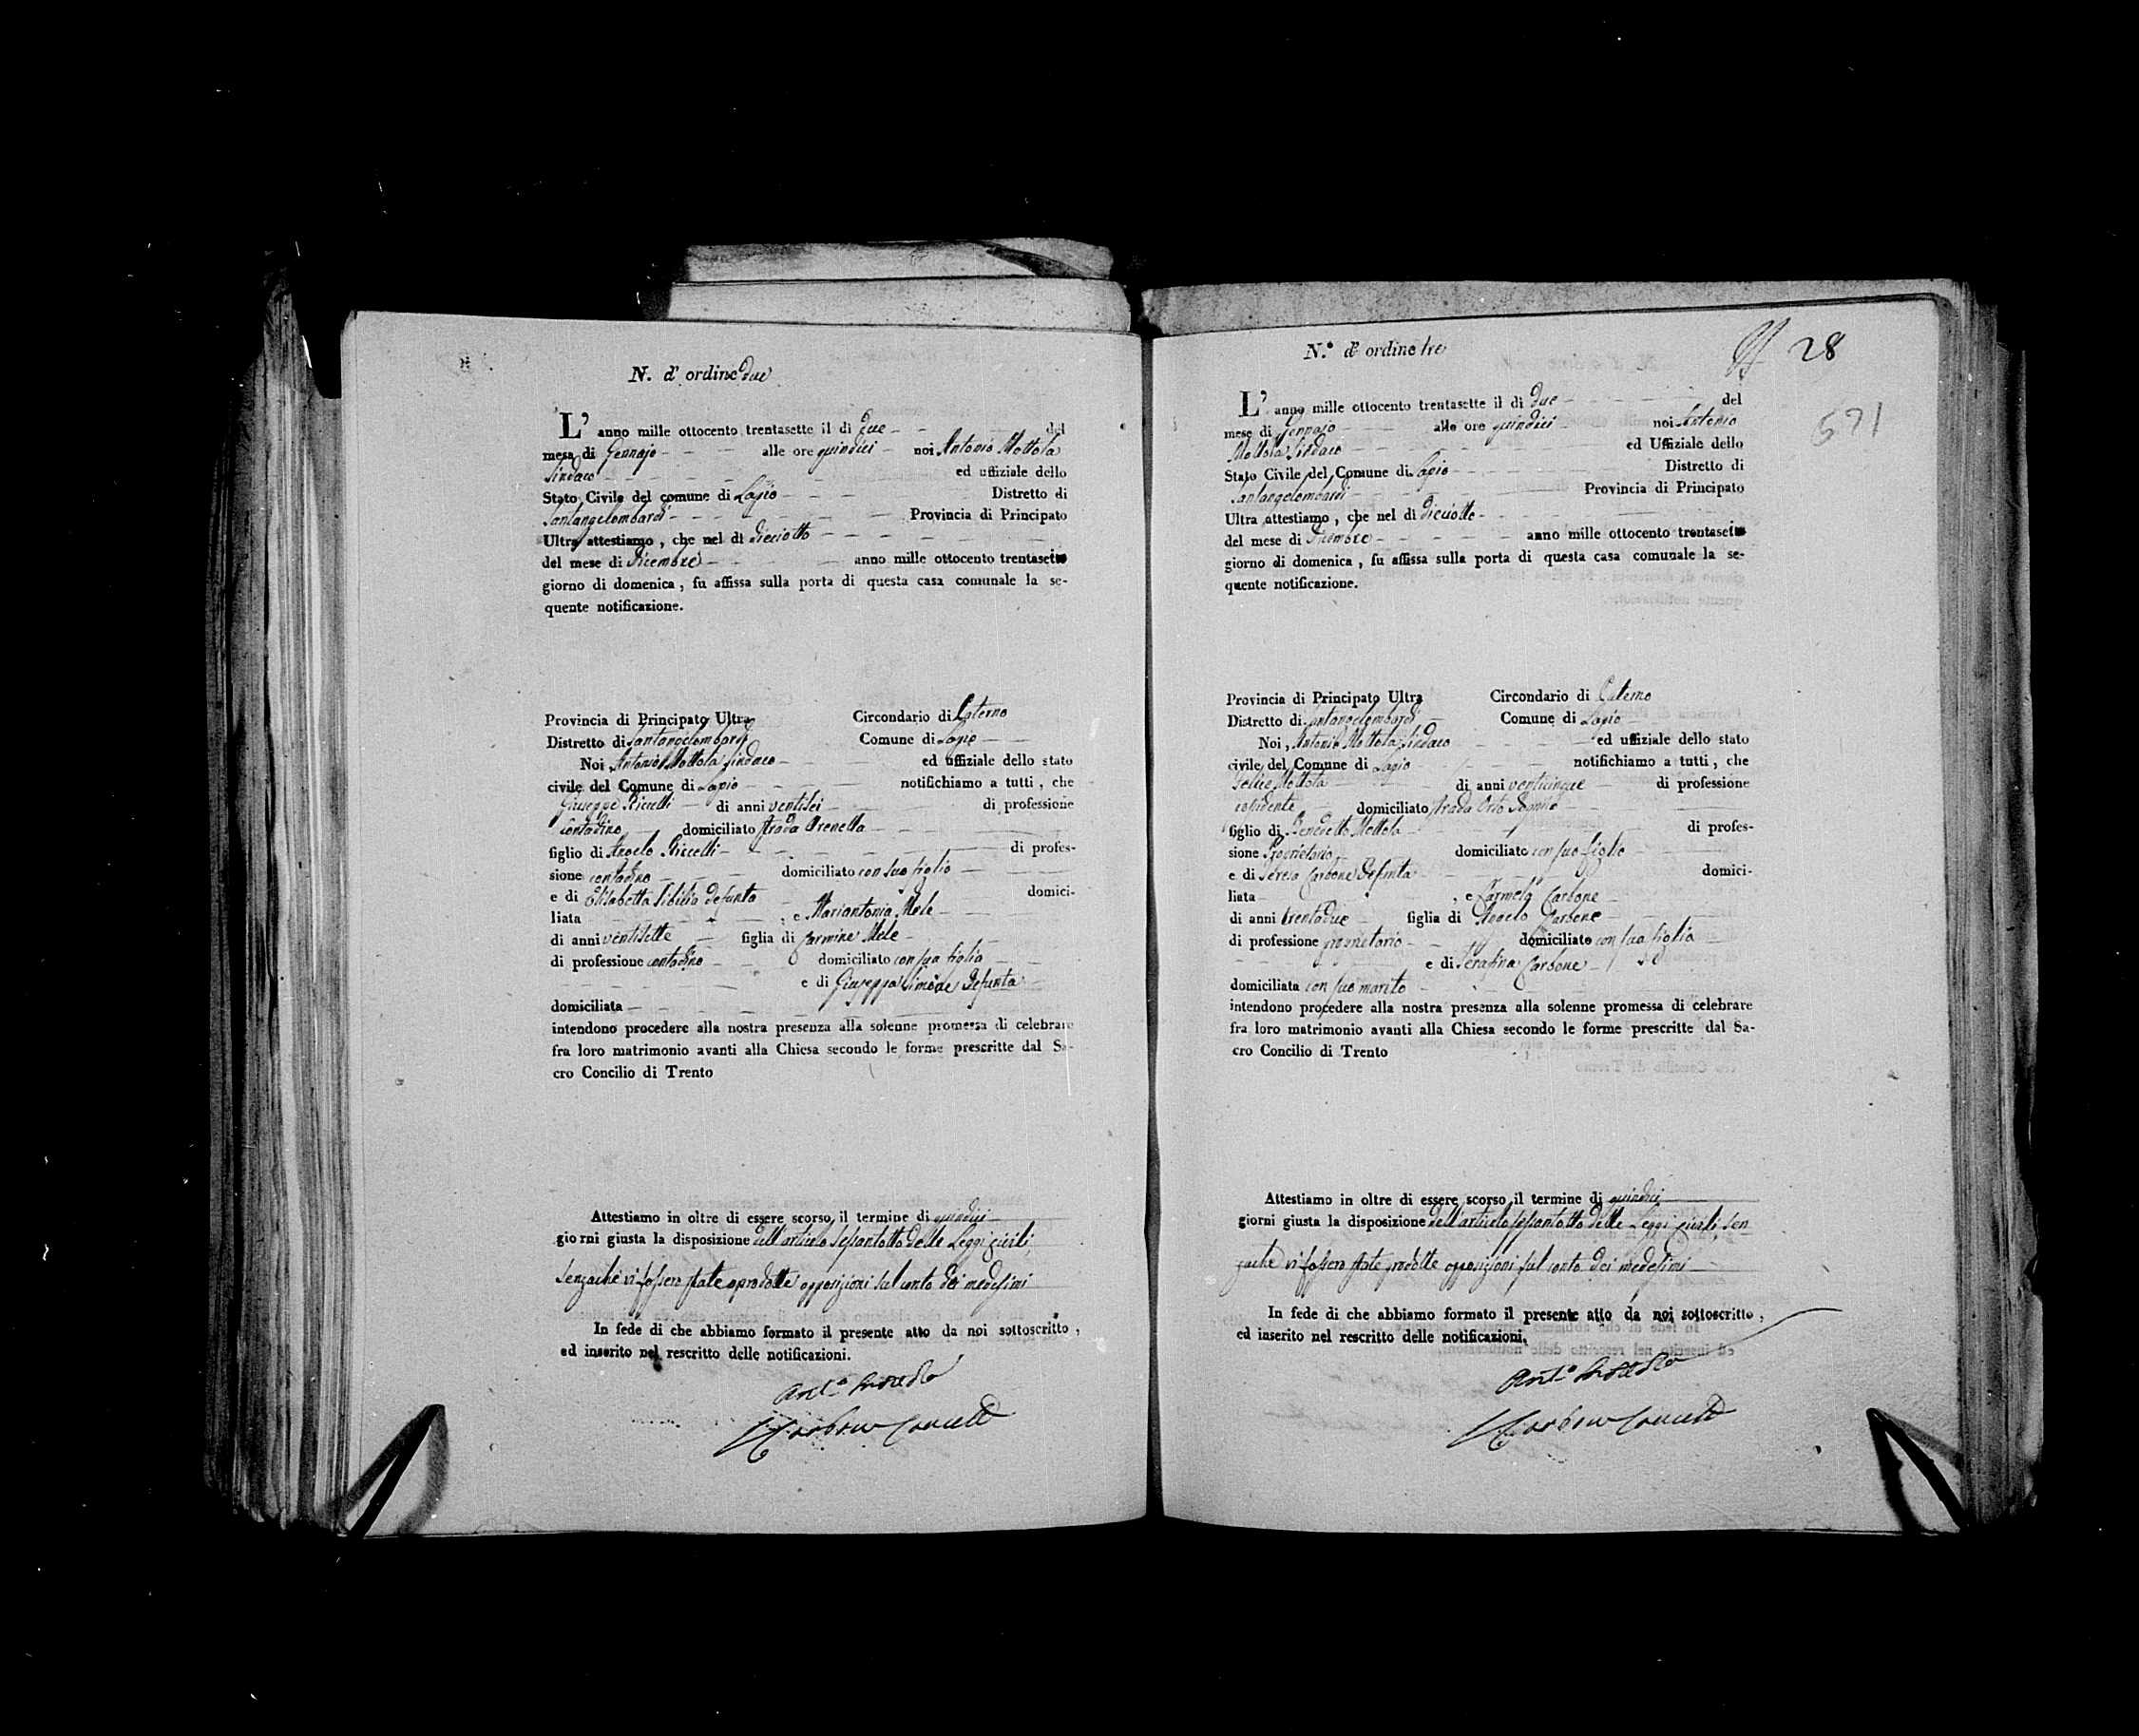 N. d' ordine due
L' anno mille ottocento trentasette il dì due del
mese di Gennajo alle ore quindici noi Antonio Mottola
Sindaco ed uffiziale dello
Stato Civile del comune di Lapio Distretto di
Santangelombardi Provincia di Principato
Ultra attestiamo , che nel dì dieciotto
del mese di Dicembre anno mille ottocento trentasei
giorno di domenica , fu affissa sulla porta di questa casa comunale la se-
quente notificazione.
Provincia di Principato Ultra Circondario di Paterno
Distretto di Santangelombardi Comune di Lapio
Noi Antonio Mottola Sindaco ed uffiziale dello stato
civile del Comune di Lapio notifichiamo a tutti , che
Giuseppe Riccelli di anni ventisei di professione
contadino domiciliato strada Arenella
figlio di Angelo Riccelli di profes-
sione contadino domiciliato con suo figlio
e di Elisabetta Sibilia defunta domici-
liata , e Mariantonia Mele
di anni ventisette figlia di Carmine Mele
di professione contadino domiciliato con sua figlia
e di Giuseppa Simone defunta
domiciliata
intendono procedere alla nostra presenza alla solenne promessa di celebrare
fra loro matrimonio avanti alla Chiesa secondo le forme prescritte dal Sa-
cro Concilio di Trento
Attestiamo in oltre di essere scorso il termine di quindici
giorni giusta la disposizione dell'articolo sessantotto delle Leggi civili,
senzachè vi fossero state prodotte opposizioni sul conto dei medesimi
In fede di che abbiamo formato il presente atto da noi sottoscritto ,
ed inserito nel rescritto delle notificazioni.
N.° d' ordine tre
28
571
L' anno mille ottocento trentasette il dì due del
mese di Gennajo alle ore quindici noi Antonio
Mottola Sindaco ed Uffiziale dello
Stato Civile del Comune di Lapio Distretto di
Santangelombardi Provincia di Principato
Ultra attestiamo , che nel dì dieciotto
del mese di Dicembre anno mille ottocento trentasei
giorno di domenica , fu affissa sulla porta di questa casa comunale la se-
quente notificazione.
Provincia di Principato Ultra Circondario di Paterno
Distretto di Santangelombardi Comune di Lapio
Noi , Antonio Mottola Sindaco ed uffiziale dello stato
civile del Comune di Lapio notifichiamo a tutti , che
Felice Mottola di anni venticinque di professione
domiciliato strada Orto
figlio di Benedetto Mottola di profes-
sione Proprietario domiciliato con suo figlio
e di Teresa Carbone defunta domici-
liata , e Carmela Carbone
di anni trentadue figlia di Angelo Carbone
di professione proprietario domiciliato con sua figlia
e di Serafina Carbone
domiciliata con suo marito
intendono procedere alla nostra presenza alla solenne promessa di celebrare
fra loro matrimonio avanti alla Chiesa secondo le forme prescritte dal Sa-
cro Concilio di Trento
Attestiamo in oltre di essere scorso il termine di quindici
giorni giusta la disposizione dell'articolo sessantotto delle Leggi civili, sen
zachè vi fossero state prodotte opposizioni sul conto dei medesimi
In fede di che abbiamo formato il presente atto da noi sottoscritto ,
ed inserito nel rescritto delle notificazioni.